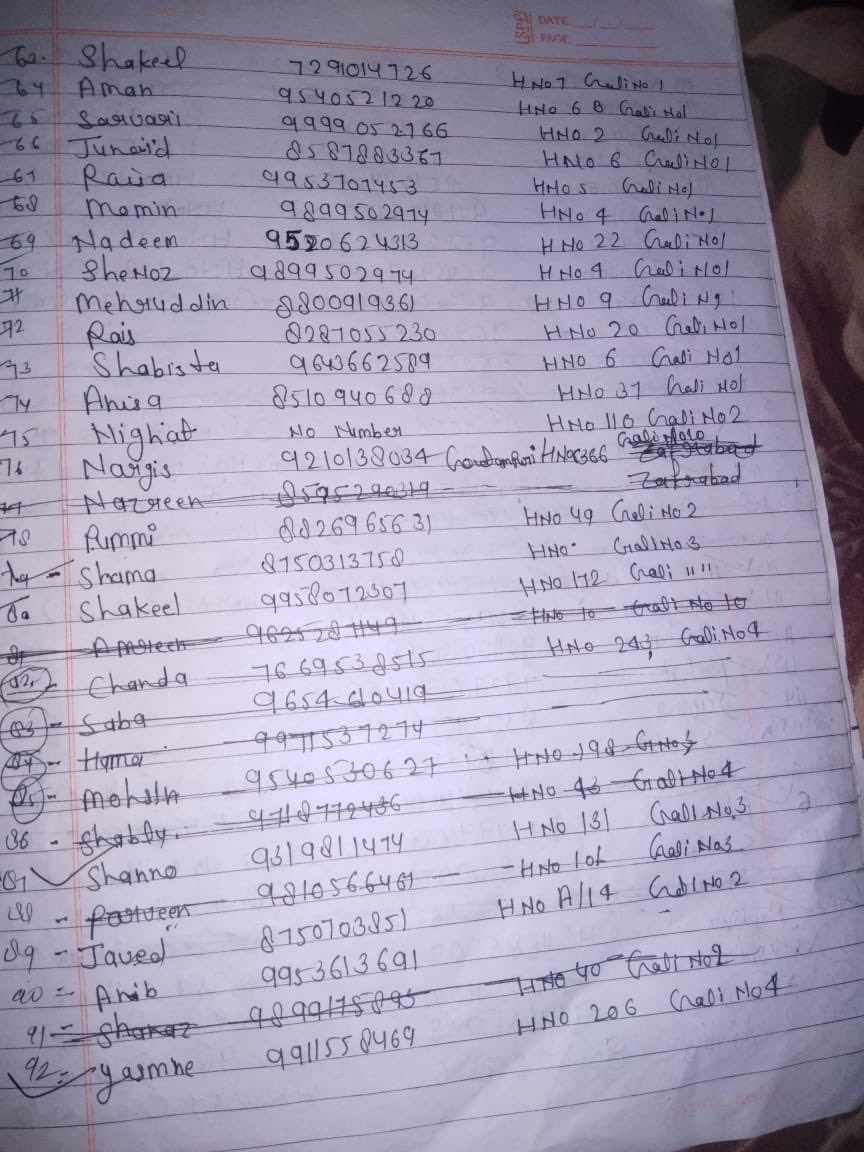 DATE
PAGE
63. Shakeel 7291014726 HNO 7 Gali No 1
64 Aman 9540521220 HNO 6 B Gali No1
65 Sarwari 9999052766 HNO 2 Gali No1
66 Junaid 8587883367 HNO 6 Gali NO1
67 Raisa 9953707453 HNO 5 Gali No1
68 Momin 9899502974 HNO 4 Gali No1
69 Nadeem 9520624313 H NO 22 Gali No1
70 SheNoz 9899502974 H NO 4 Gali No1
71 Mehruddin 8800919361 HNO 9 Gali
72 Rais 8287055230 HNO 20 Gali No1
73 Shabista 9643662589 HNO 6 Gali No1
74 Anisa 8510940688 HNO 37 Gali No1
75 Nighat No Number HNO 116 Gali No2
76 Nargis 9210138034 HNO Gali No10 Zafrabad
77 Nazreen 8595290319 Zafrabad
78 Rimmi 8826965631 HNO 49 Gali No 2
79 - Shama 8750313758 HNO Gali No3
80 Shakeel 9958072307 HNO 172 Gali " "
81 9625281149 HNO 10 Gali No 10
82 - Chanda 7669538515 HNO 243, Gali No4
83 - Saba 9654610419
84 - Huma 9971537274
85 - Mohsin 9540530627 HNO 198
86 - 9718772436 HNO 43 Gali No4
87 Shanno 9319811474 H NO 131 Gali No.3
88 - Parveen 9810566461 - HNO Gali No3
89 - Javed 8750703851 HNO A/14 Gali No 2
90 = Anib 9953613691
91 = Shanaz 9899175893 HNO 40 Gali No2
92 = Yasmine 9911558469 HNO 206 Gali No4